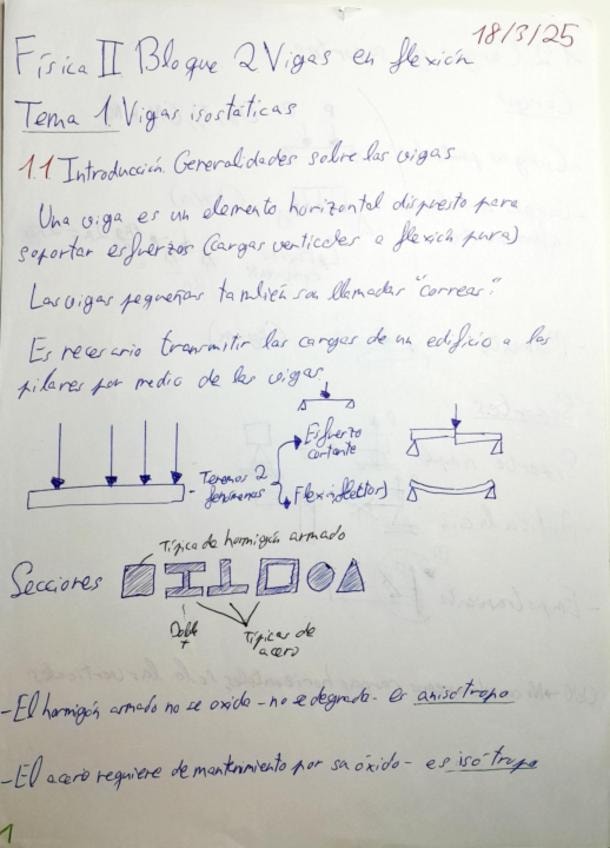 18/3/25
Física II Bloque 2 Vigas en flexión
Tema 1. Vigas isostáticas
1.1 Introducción. Generalidades sobre las vigas
Una viga es un elemento horizontal dispuesto para
soportar esfuerzos (cargas verticales a flexión pura)
Las vigas pequeñas también son llamadas "correas".
Es necesario transmitir las cargas de un edificio a los
pilares por medio de las vigas.
- Tenemos 2
fenómenos
Esfuerzo
cortante
Flexión
Típica de hormigón armado
Secciones
Doble
T
Típicas de
acero
-El hormigón armado no se oxida - no se degrada - es anisótropo
-El acero requiere de mantenimiento por su óxido - es isótropo
1